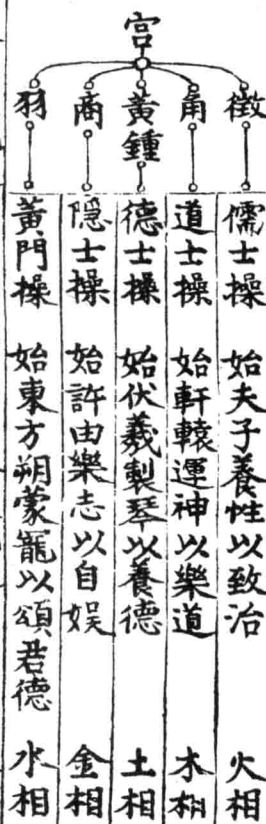 宮
徵 儒士操 始夫子養性以致治 火相
角 道士操 始軒轅運神以樂道 木相
黃鍾 德士操 始伏羲製琴以養德 土相
商 隱士操 始許由樂志以自娱 金相
羽 黃門操 始東方朔蒙寵以頌君德 水相